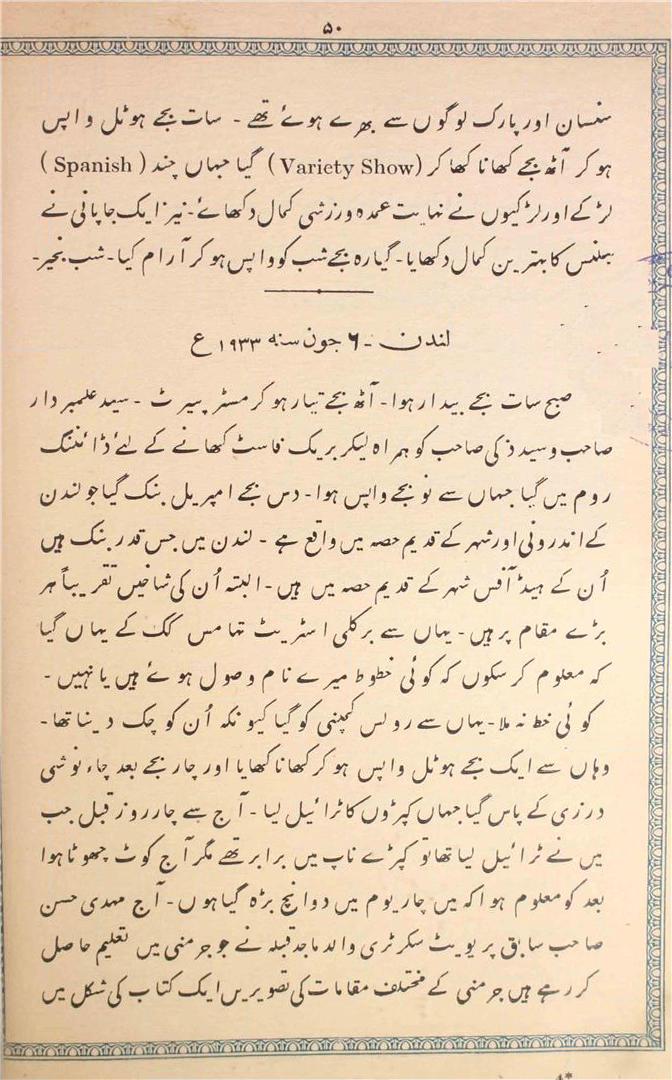 ۵۰
سنسان اور پارک لوگوں سے بھرے ہوئے تھے - سات بجے ہوٹل واپس
ہو کر آٹھ بجے کھانا کھا کر (Variety Show) گیا جہاں چند (Spanish)
لڑکے اور لڑکیوں نے نہایت عمدہ ورزشی کمال دکھائے - نیز ایک جاپانی نے
بیلنس کا بہترین کمال دکھایا - گیارہ بجے شب کو واپس ہو کر آرام کیا - شب بخیر -
لندن - ۶ جون سنہ ۱۹۳۳ ع
صبح سات بجے بیدار ہوا - آٹھ بجے تیار ہو کر مسٹر پیرٹ - سید علمبردار
صاحب و سید ذکی صاحب کو ہمراہ لیکر بریک فاسٹ کھانے کے لئے ڈائننگ
روم میں گیا جہاں سے نو بجے واپس ہوا - دس بجے امپریل بنک گیا جو لندن
کے اندرونی اور شہر کے قدیم حصہ میں واقع ہے - لندن میں جس قدر بنک ہیں
اُن کے ہیڈ آفس شہر کے قدیم حصہ میں ہیں - البتہ اُن کی شاخیں تقریباً ہر
بڑے مقام پر ہیں - یہاں سے برکلی اسٹریٹ تھامس کک کے یہاں گیا
کہ معلوم کر سکوں کہ کوئی خطوط میرے نام وصول ہوئے ہیں یا نہیں -
کوئی خط نہ ملا - یہاں سے رولس کمپنی کو گیا کیونکہ اُن کو چک دینا تھا -
وہاں سے ایک بجے ہوٹل واپس ہو کر کھانا کھایا اور چار بجے بعد چاء نوشی
درزی کے پاس گیا جہاں کپڑوں کا ٹرائیل لیا - آج سے چار روز قبل جب
میں نے ٹرائیل لیا تھا تو کپڑے ناپ میں برابر تھے مگر آج کوٹ چھوٹا ہوا
بعد کو معلوم ہوا کہ میں چار یوم میں دو انچ بڑہ گیا ہوں - آج مہدی حسن
صاحب سابق پریویٹ سکرٹری والد ماجد قبلہ نے جو جرمنی میں تعلیم حاصل
کر رہے ہیں جرمنی کے مختلف مقامات کی تصویریں ایک کتاب کی شکل میں
4*